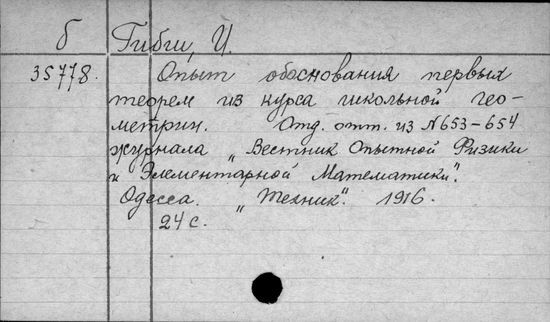 б Гибш, И.
35778. Опыт обоснования первых
теорем из курса школьной гео-
метрии. Отд. отт. из №653-654
журнала „Вестник Опытной Физики
и Элементарной Математики".
Одесса. „Техник". 1916.
24 с.